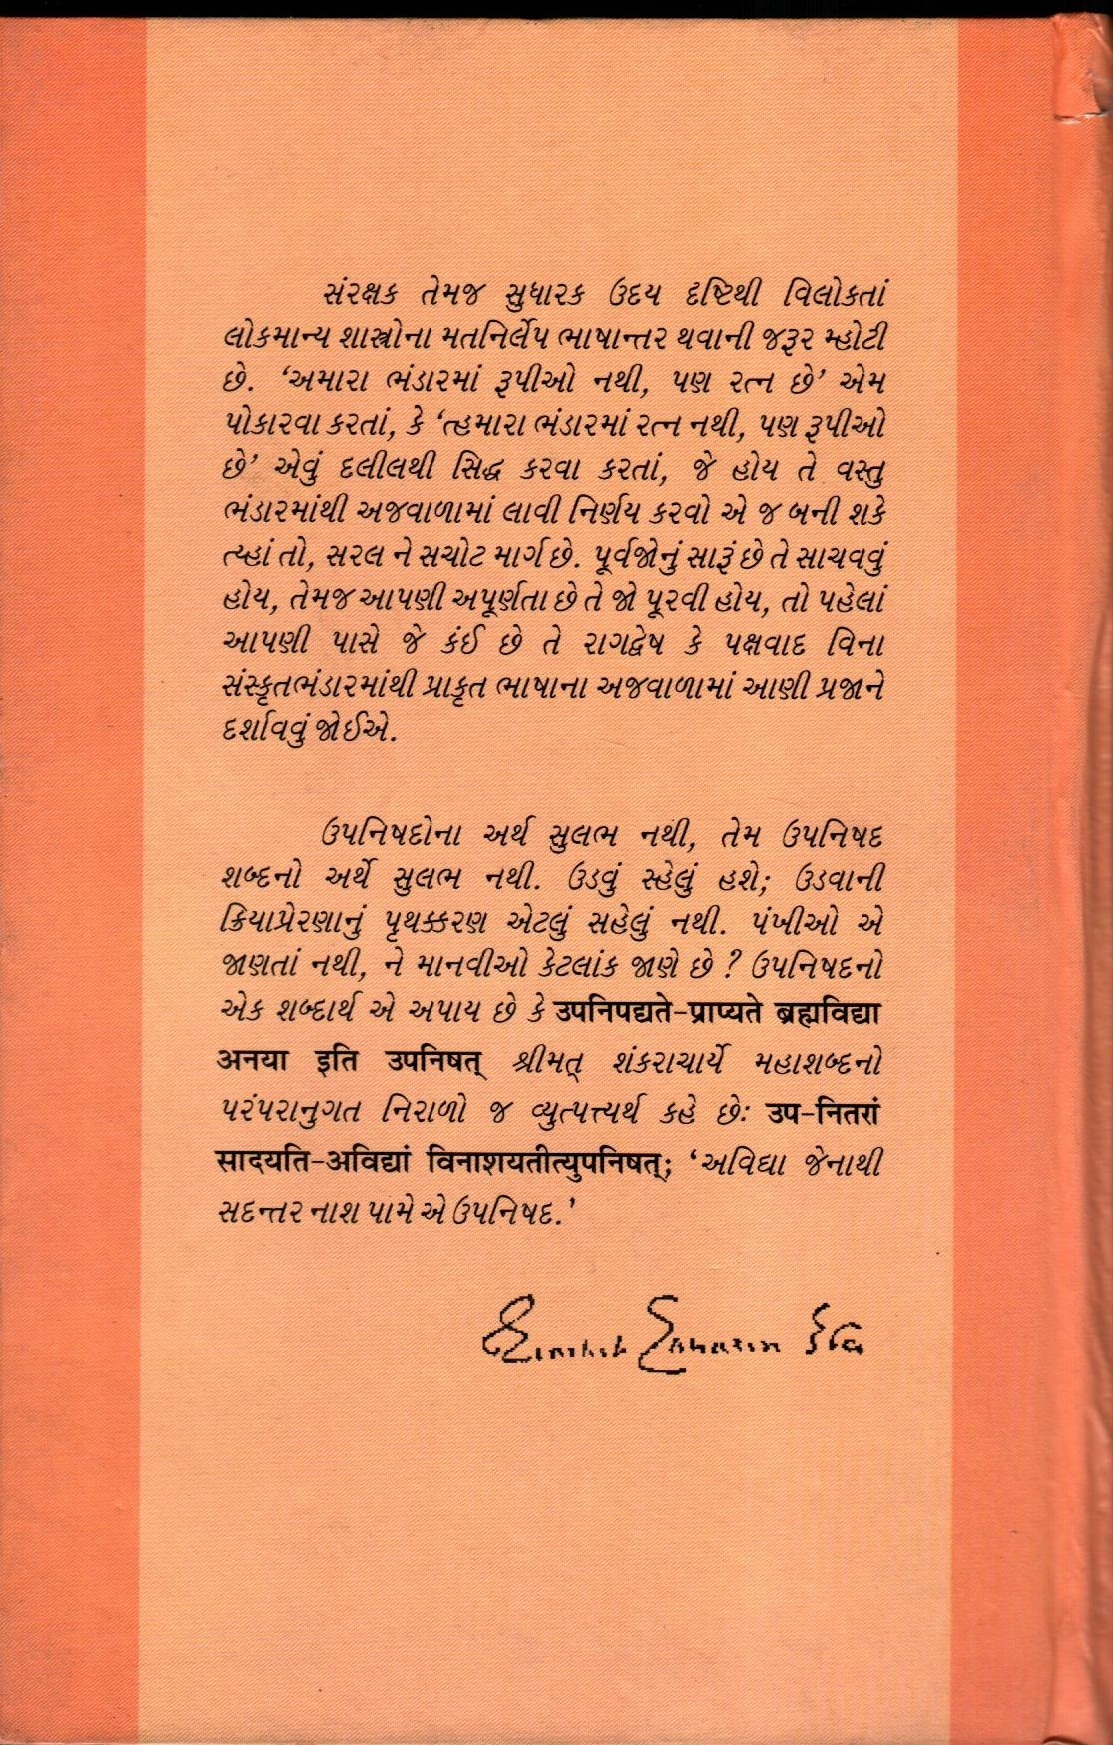 સંરક્ષક તેમજ સુધારક ઉદય દૃષ્ટિથી વિલોકતાં
લોકમાન્ય શાસ્ત્રોના મતનિર્લેપ ભાષાન્તર થવાની જરૂર મ્હોટી
છે. ‘અમારા ભંડારમાં રૂપીઓ નથી, પણ રત્ન છે’ એમ
પોકારવા કરતાં, કે ‘ત્હમારા ભંડારમાં રત્ન નથી, પણ રૂપીઓ
છે’ એવું દલીલથી સિદ્ધ કરવા કરતાં, જે હોય તે વસ્તુ
ભંડારમાંથી અજવાળામાં લાવી નિર્ણય કરવો એ જ બની શકે
ત્ય્હાં તો, સરલ ને સચોટ માર્ગ છે. પૂર્વજોનું સારૂં છે તે સાચવવું
હોય, તેમજ આપણી અપૂર્ણતા છે તે જો પૂરવી હોય, તો પહેલાં
આપણી પાસે જે કંઈ છે તે રાગદ્વેષ કે પક્ષવાદ વિના
સંસ્કૃતભંડારમાંથી પ્રાકૃત ભાષાના અજવાળામાં આણી પ્રજાને
દર્શાવવું જોઈએ.
ઉપનિષદોના અર્થ સુલભ નથી, તેમ ઉપનિષદ
શબ્દનો અર્થે સુલભ નથી. ઉડવું સ્હેલું હશે; ઉડવાની
ક્રિયાપ્રેરણાનું પૃથક્કરણ એટલું સહેલું નથી. પંખીઓ એ
જાણતાં નથી, ને માનવીઓ કેટલાંક જાણે છે ? ઉપનિષદનો
એક શબ્દાર્થ એ અપાય છે કે उपनिपद्यते-प्राप्यते ब्रह्मविद्या
अनया इति उपनिषत् શ્રીમત્ શંકરાચાર્યે મહાશબ્દનો
પરંપરાનુગત નિરાળો જ વ્યુત્પત્ત્યર્થ કહે છેઃ उप-नितरां
सादयति-अविद्यां विनाशयतीत्युपनिषत्; ‘અવિદ્યા જેનાથી
સદન્તર નાશ પામે એ ઉપનિષદ.’